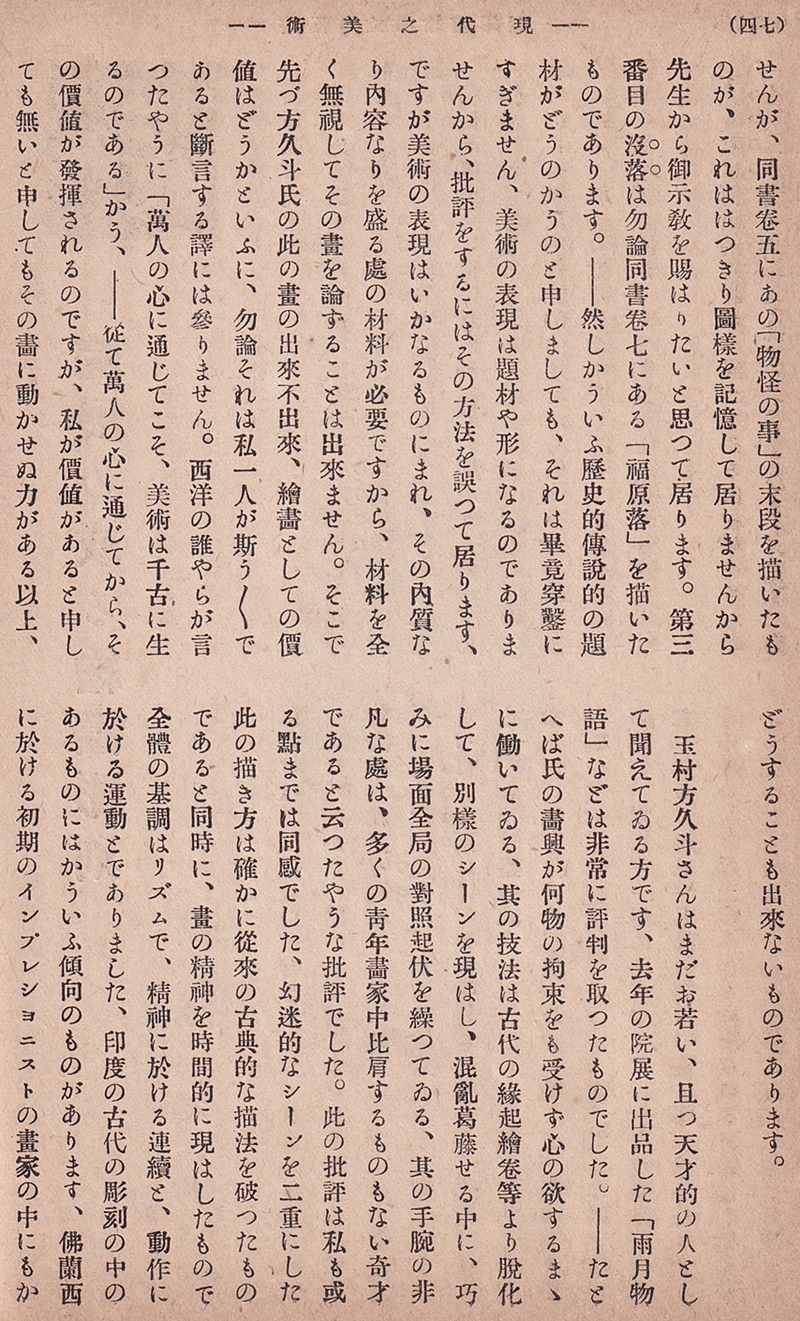 (四七)
―― 現代之美術 ――
せんが、同書卷五にあの「物怪の事」の末段を描いたも
のが、これははつきり圖樣を記憶して居りませんから
先生から御示教を賜はりたいと思つて居ります。第三
番目の沒落は勿論同書卷七にある「福原落」を描いた
ものであります。――然しかういふ歷史的傳說的の題
材がどうのかうのと申しましても、それは畢竟穿鑿に
すぎません、美術の表現は題材や形になるのでありま
せんから、批評をするにはその方法を誤つて居ります、
ですが美術の表現はいかなるものにまれ、その内質な
り内容なりを盛る處の材料が必要ですから、材料を全
く無視してその畫を論ずることは出來ません。そこで
先づ方久斗氏の此の畫の出來不出來、繪畫としての價
値はどうかといふに、勿論それは私一人が斯う〱で
あると斷言する譯には參りません。西洋の誰やらが言
つたやうに「萬人の心に通じてこそ、美術は千古に生
るのである」かう、――從て萬人の心に通じてから、そ
の價値が發揮されるのですが、私が價値があると申し
ても無いと申してもその畫に動かせぬ力がある以上、
どうすることも出來ないものであります。
玉村方久斗さんはまだお若い、且つ天才的の人とし
て聞えてゐる方です、去年の院展に出品した「雨月物
語」などは非常に評判を取つたものでした。――たと
へば氏の畫興が何物の拘束をも受けず心の欲するまゝ
に働いてゐる、其の技法は古代の緣起繪卷等より脫化
して、別樣のシーンを現はし、混亂葛藤せる中に、巧
みに場面全局の對照起伏を繰つてゐる、其の手腕の非
凡な處は、多くの靑年畫家中比肩するものもない奇才
であると云つたやうな批評でした。此の批評は私も或
る點までは同感でした、幻迷的なシーンを二重にした
此の描き方は確かに從來の古典的な描法を破つたもの
であると同時に、畫の精神を時間的に現はしたもので
全體の基調はリズムで、精神に於ける連續と、動作に
於ける運動とでありました、印度の古代の彫刻の中の
あるものにはかういふ傾向のものがあります、佛蘭西
に於ける初期のインプレショニストの畫家の中にもか